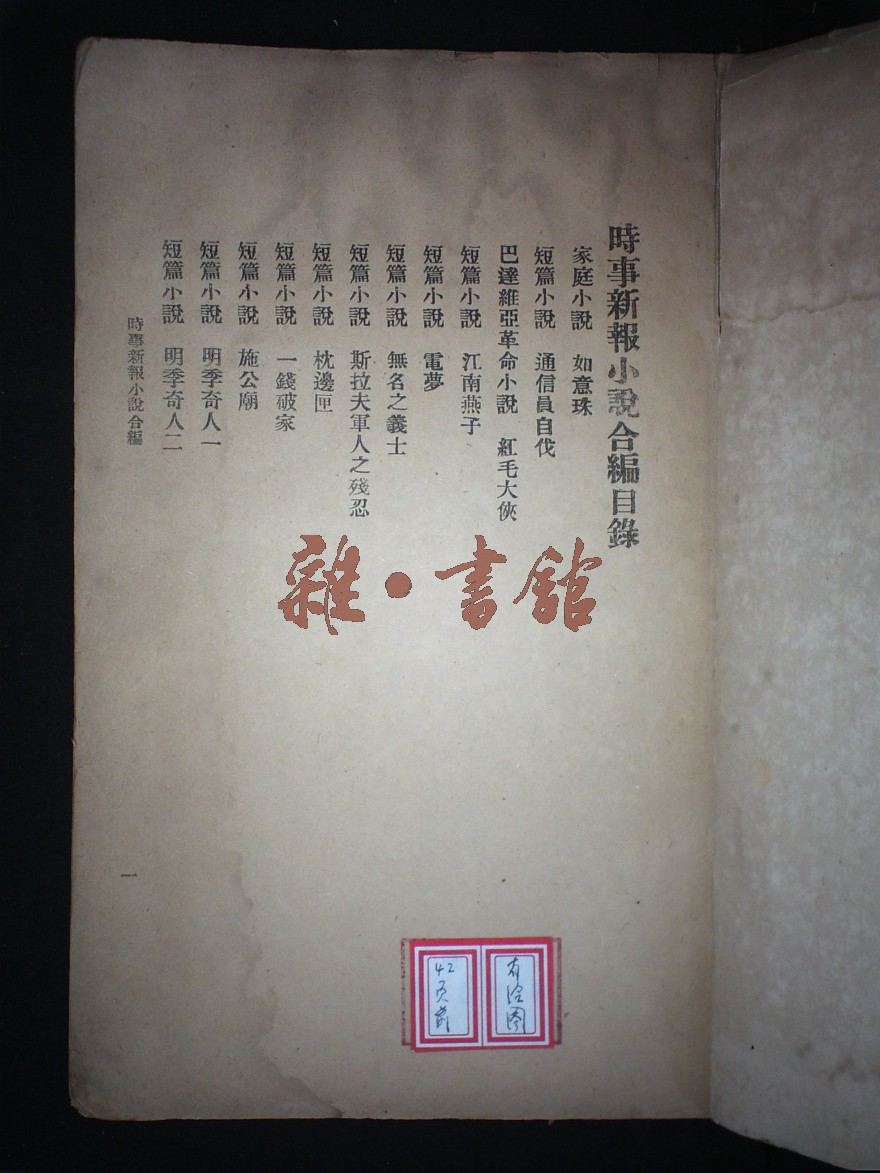 時事新報小說合編目錄
家庭小說　如意珠
短篇小說　通信員自伐
巴達維亞革命小說　紅毛大俠
短篇小說　江南燕子
短篇小說　電夢
短篇小說　無名之義士
短篇小說　斯拉夫軍人之殘忍
短篇小說　枕邊匣
短篇小說　一錢破家
短篇小說　施公廟
短篇小說　明季奇人一
短篇小說　明季奇人二
時事新報小說合編
一
雜·書館
42页前